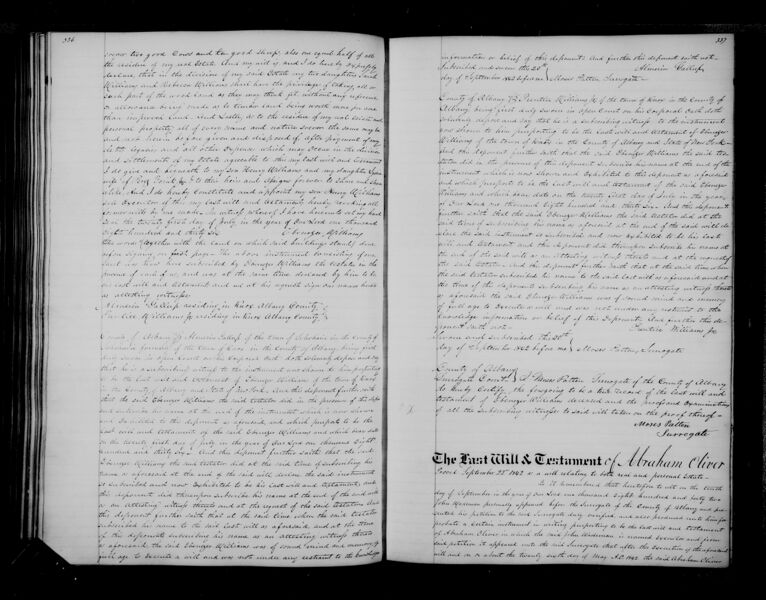 336
cover two good Cows and ten good Sheep, also one equal half of all
the residue of my real Estate. And my will is and I do hereby expressly
declare, that in the division of my said Estate my two daughters
Williams and Rebecca Williams shall have the privilege of taking all or
such part of the wood land as they may think fit without any reference
or allowance being made as to timber land being worth more per acre
than improved land. And Lastly, as to the residue of my real estate and
personal property all of every name and nature soever the same may be
and not herein before given and disposed of after payment of my
debts legacies and all other expenses which may occur in the
and Settlement of my Estate agreeable to this my last will and testament
I do give and bequeath to my Son Henry Williams and my daughter
wife of to their heirs and assigns forever to share and share
alike. And I do hereby constitute and appoint my son Henry Williams
sole Executor of this my last will and testament hereby revoking all
former wills by me made. In witness whereof I have hereunto set my hand
on the twenty first day of July in the year of Our Lord one thousand
Eight hundred and thirty six Ebenezer Williams
(the words together with the land on which said buildings stand) done
before signing on first page. The above instrument consisting of one
sheet was here Subscribed by Ebenezer Williams the testator in the
presence of each of us, and was at the same time declared by him to be
his last will and testament and we at his request sign our names hereto
as attesting witnesses
Almerin Gallup residing in Knox Albany County
Prentice Williams Jr residing in Knox Albany County
County of Albany Almerin Gallup of the town of in the County of
the said Ebenezer Williams the said testator did in the presence of the
subscribe his name at the end of the instrument which is now shown
and Exhibited to the deponent as aforesaid and which purports to be the
last will and testament of the said Ebenezer Williams and which bears date
on the twenty first day of July in the year of Our Lord one thousand Eight
hundred and thirty six. And this deponent further saith that the said
Ebenezer Williams the said testator did at the said time of subscribing his
name as aforesaid at the end of the said will declare the said instrument
so subscribed and now Exhibited to be his last will and testament and
this deponent did thereupon subscribe his name at the end of the said will
as an attesting witness thereto and at the request of the said testator. And
this deponent further saith that at the said time when the said testator
subscribed his name to the said last will as aforesaid and at the time
of the deponents subscribing his name as an attesting witness thereto
as aforesaid, the said Ebenezer Williams was of sound mind and memory of
full age to execute a will and was not under any restraint to the knowledge
337
information or belief of this deponent. And further this deponent saith not
Subscribed and sworn the 20th Almerin Gallup
day of September 1842 before me Moses Patten Surrogate
County of Albany Prentice Williams Jr of the town of Knox in the County of
Albany being first duly sworn in open Court on his corporal oath doth
solemnly depose and say that he is a subscribing witness to the instrument
now shown to him purporting to be the last will and testament of Ebenezer
Williams of the town of Knox in the County of Albany and State of New York
And this deponent further saith that the said Ebenezer Williams the said tes-
tator did in the presence of this deponent subscribe his name at the end of the
instrument which is now shown and Exhibited to this deponent as aforesaid
and which purports to be the last will and testament of the said Ebenezer
Williams and which bears date on the twenty first day of July in the year
of Our Lord one thousand Eight hundred and thirty six. And this deponent
further saith that the said Ebenezer Williams the said testator did at the
said time of subscribing his name as aforesaid at the end of the said will de-
clare the said instrument so subscribed and now exhibited to be his last
will and testament and this deponent did thereupon subscribe his name at
the end of the said will as an attesting witness thereto and at the request of
the said testator. And this deponent further saith that at the said time when
the said testator subscribed his name to the said last will as aforesaid and at
the time of this deponent subscribing his name as an attesting witness thereto
as aforesaid the said Ebenezer Williams was of sound mind and memory
of full age to Execute a will and was not under any restraint to the
knowledge information or belief of this Deponent. And further this de-
ponent saith not Prentice Williams Jr
Sworn and Subscribed this 20th
day of September 1842 before me Moses Patten, Surrogate
County of Albany
Surrogate Court I Moses Patten Surrogate of the County of Albany
do hereby Certify the foregoing to be a true record of the last will and
testament of Ebenezer Williams deceased and the proofs and examinations
of all the subscribing witnesses to said will taken on the proof thereof
Moses Patten
Surrogate
The Last Will & Testament of Abraham Oliver
Proved September 22d 1842 as a will relating to both real and personal Estate
Be it remembered that heretofore to wit on the tenth
day of September in the year of our Lord one thousand Eight hundred and forty two
John personally appeared before the Surrogate of the County of Albany and pre-
sented his petition to the said Surrogate duly verified and also produced unto him for
probate a certain instrument in writing purporting to be the last will and testament
of Abraham Oliver in which the said John is named Executor and from
said petition it appeared unto the said Surrogate that after the execution of the aforesaid
will and on or about the twenty sixth day of May A.D. 1842 the said Abraham Oliver